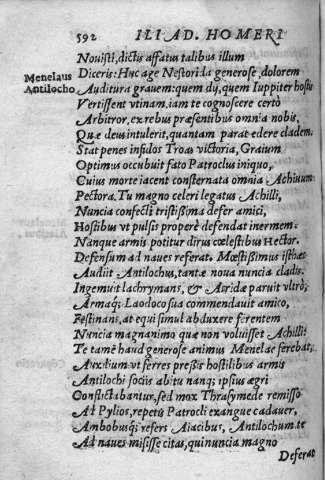 592 ILIAD. HOMERI
Novisti, dictis affatus talibus illum
Menelaus Antilocho
Diceris: Huc age Nestorida generose, dolorem
Auditura gravem: quem dij, quem Iuppiter hostis
Vertissent vtinam, iam te cognoscere certò
Arbitror, ex rebus præsentibus omnia nobis,
Quæ deus intulerit, quantam parat edere cladem.
Stat penes infidos Troas victoria, Graium
Optimus occubuit fato Patroclus iniquo,
Cuius morte iacent consternata omnia Achiuum
Pectora. Tu magno celeri legatus Achilli,
Nuncia confecti tristissima defer amici,
Hostibus vt pulsis properè defendat inermem:
Nanque armis potitur dirus cœlestibus Hector.
Defensum ad naues referat. Mœstissimus isthæc
Audijt Antilochus, tantæ noua nuncia cladis.
Ingemuit lachrymans, & Atridæ paruit vltrò;
Armaq; Laodoco sua commendauit amico,
Festinans, at equi simul abduxere ferentem
Nuncia magnanimo quæ non voluisset Achilli:
Te tamẽ haud generose animus Menelae ferebat;
Auxilium vt ferres pressis hostilibus armis
Antilochi socijs abitu nanq; ipsius ægri
Conflictabantur, sed mox Thrasymede remisso
Ad Pylios, repetis Patrocli exangue cadauer,
Ambobusq; refers Aiacibus, Antilochum te
Ad naues misisse citas, qui nuncia magno
Deferat